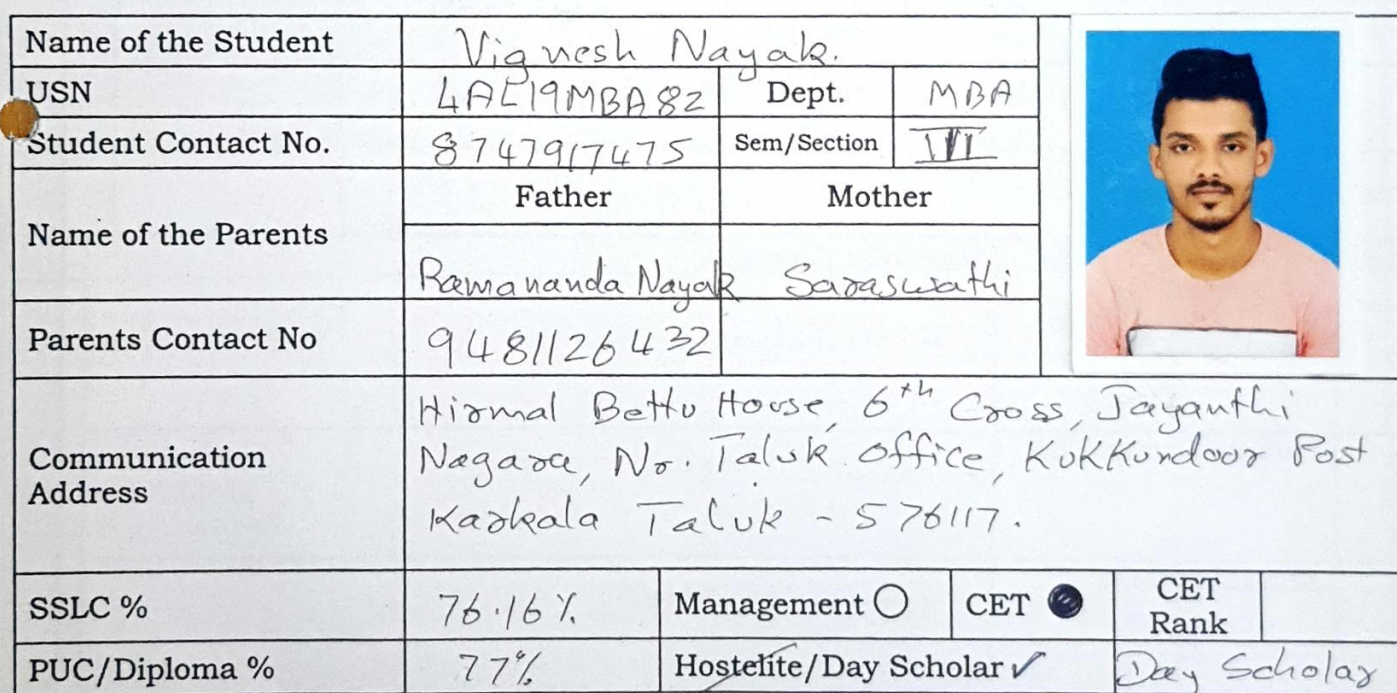 Name of the Student Vignesh Nayak.
USN 4AL19MBA82 Dept. MBA
Student Contact No. 8747917475 Sem/Section
Father Mother
Name of the Parents
Ramananda Nayak Saraswathi
Parents Contact No 9481126432
Hirmal Bettu House, 6th Cross, Jayanthi
Communication Nagara, Nr. Taluk office, Kukkundoor Post
Address Karkala Taluk - 576117.
SSLC % 76.16% Management CET CET Rank
PUC/Diploma % 77% Hostelite/Day Scholar ✓ Day Scholar